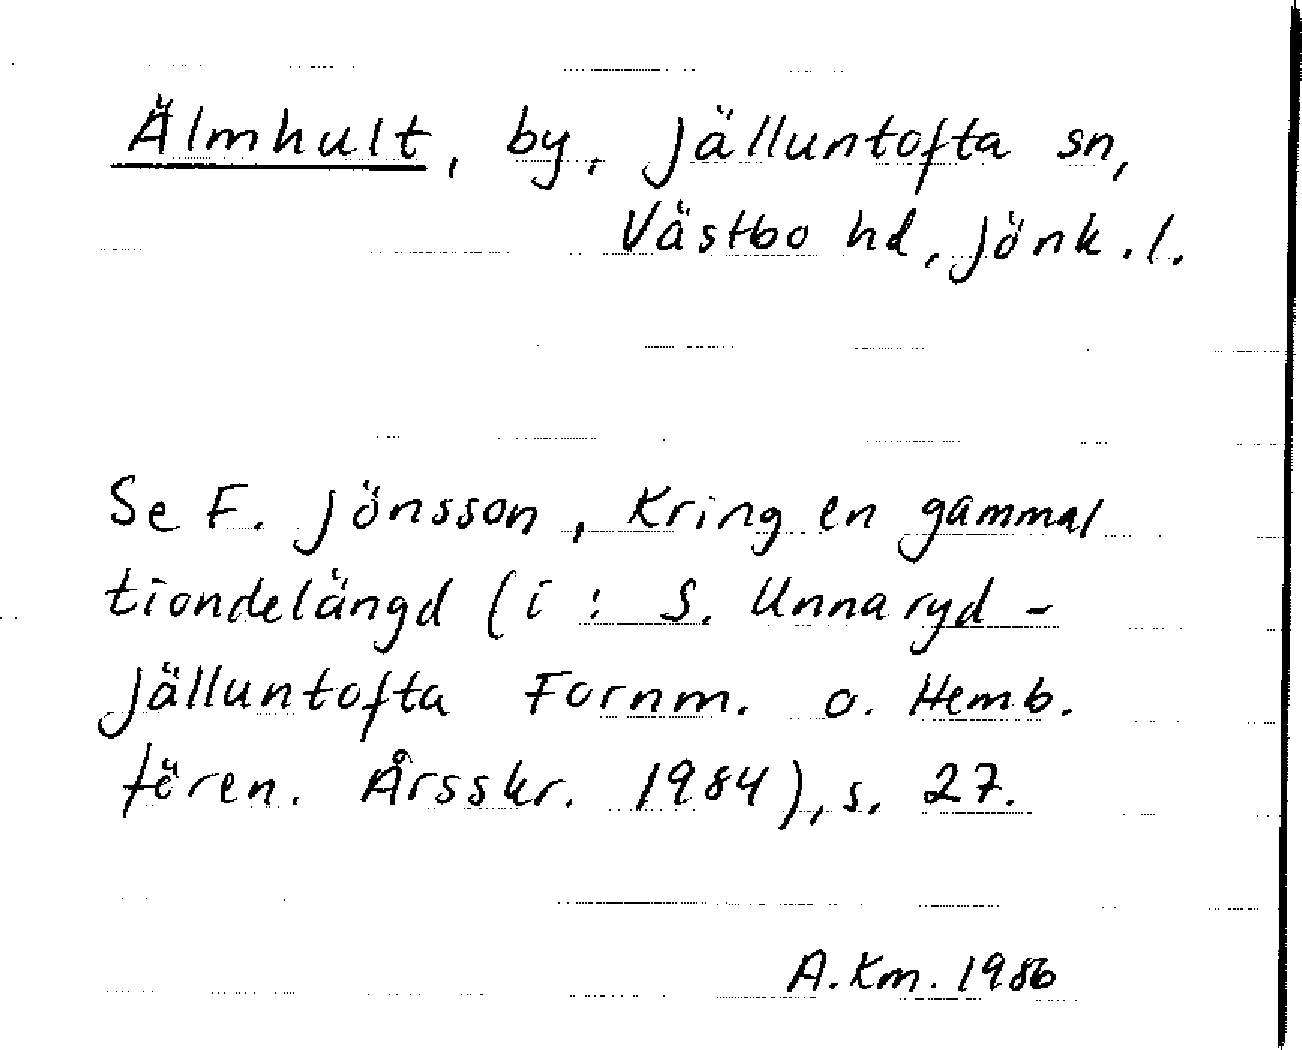 Älmhult, by, Jälluntofta sn,
Västbo hd, Jönk. l.
Se F. Jönsson, Kring en gammal
tiondelängd (i: S. Unnaryd -
Jälluntofta Fornm. o. Hemb.
fören. Årsskr. 1984), s. 27.
A. Km. 1986